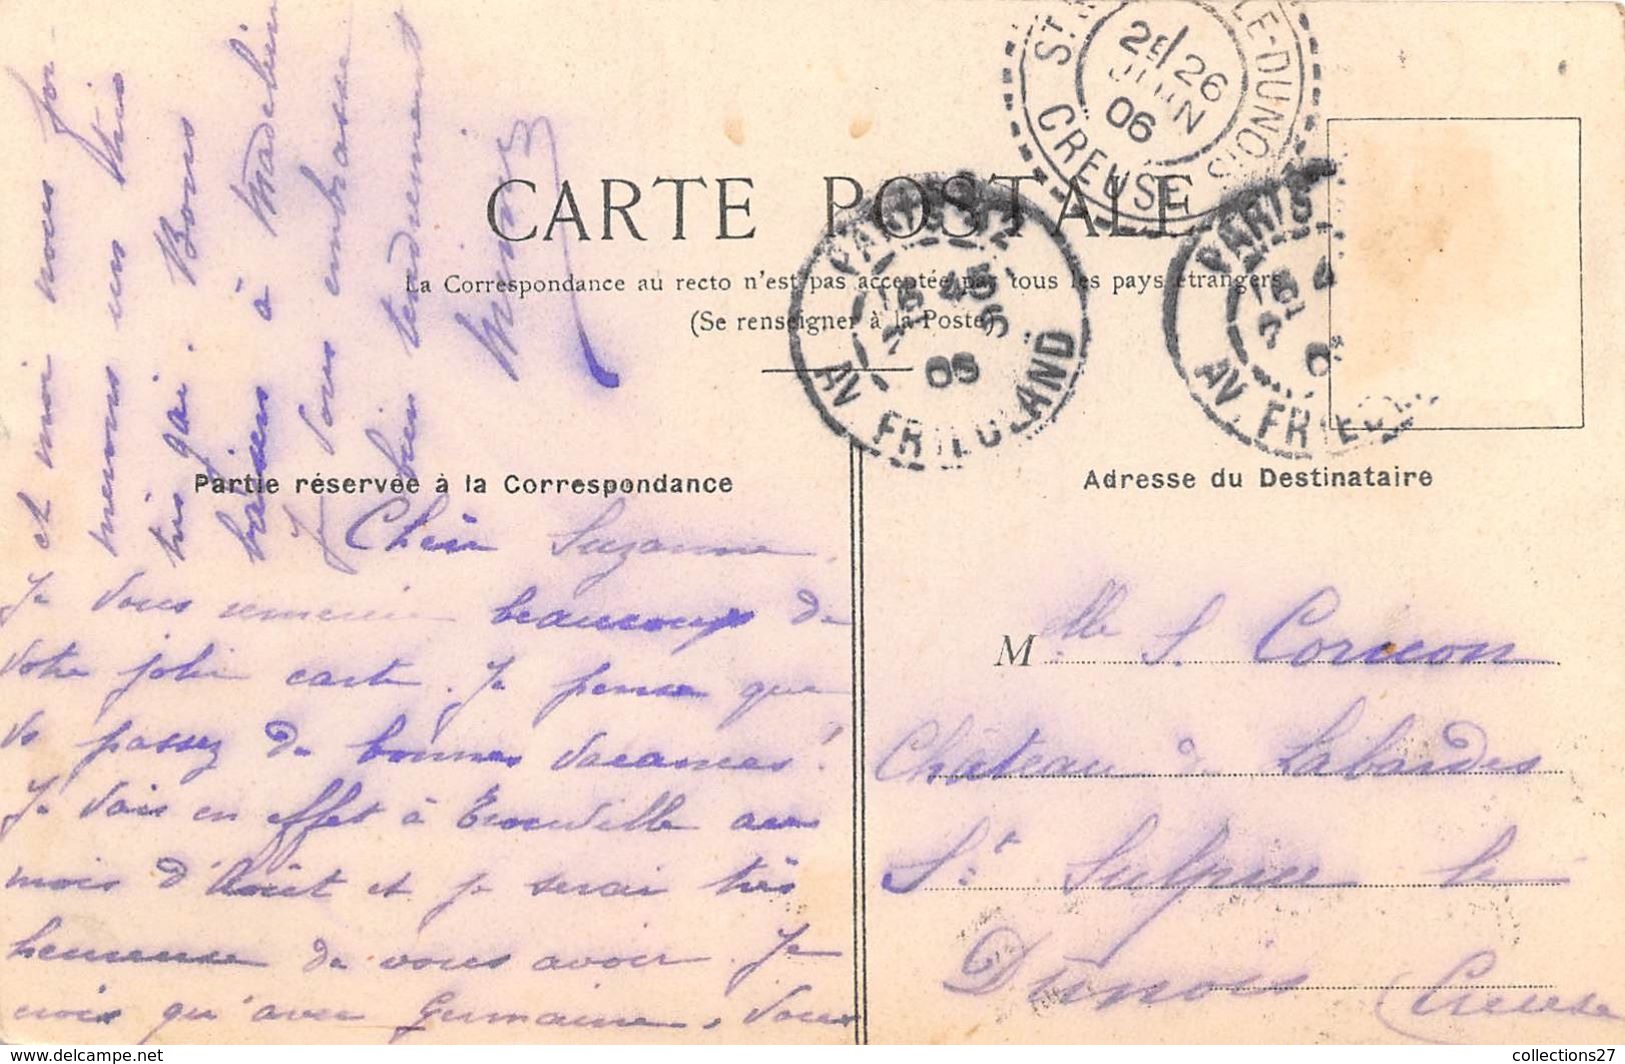 CARTE POSTALE
La Correspondance au recto n'est pas acceptée par tous les pays étrangers
(Se renseigner à la Poste)
Partie réservée à la Correspondance
Adresse du Destinataire
Chère Suzanne
Je vous remercie beaucoup de
votre jolie carte. Je pense que
vs passez de bonnes vacances!
Je vais en effet à Trouville au
mois d'Août et je serai très
heureuse de vous avoir. Je
crois qu'avec Germaine, vous
et moi nous for-
merons un trio
très gai. Bons
baisers à Madeleine
Je vous embrasse
bien tendrement
Mlle S. Cornon
Château de Labardes
St Sulpice le
Dunois (Creuse
ST LE-DUNOIS
CREUSE
2E/26
JUIN
06
PARIS
AV. FRIEDLAND
06
PARIS
AV. FRIED
www.delcampe.net
collections27